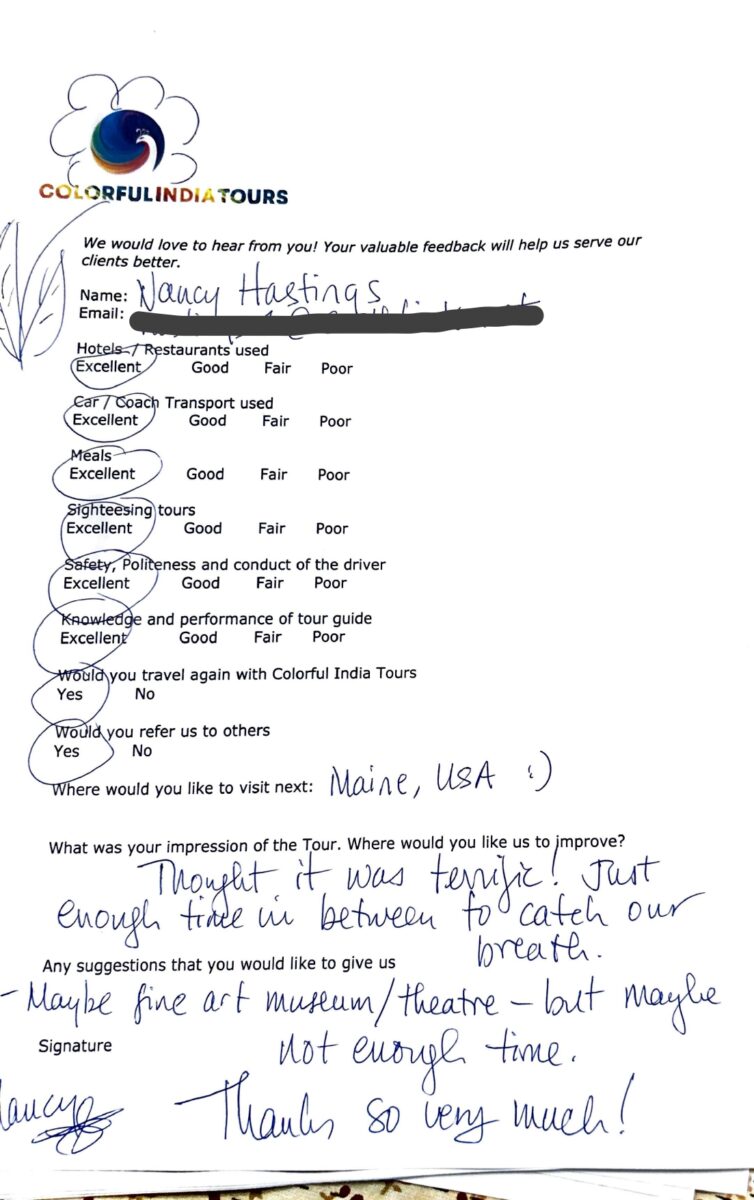 COLORFULINDIATOURS
We would love to hear from you! Your valuable feedback will help us serve our
clients better.
Name: Nancy Hastings
Email:
Hotels / Restaurants used
Excellent Good Fair Poor
Car / Coach Transport used
Excellent Good Fair Poor
Meals
Excellent Good Fair Poor
Sighteesing tours
Excellent Good Fair Poor
Safety, Politeness and conduct of the driver
Excellent Good Fair Poor
Knowledge and performance of tour guide
Excellent Good Fair Poor
Would you travel again with Colorful India Tours
Yes No
Would you refer us to others
Yes No
Where would you like to visit next: Maine, USA :)
What was your impression of the Tour. Where would you like us to improve?
Thought it was terrific! Just
enough time in between to catch our
breath.
Any suggestions that you would like to give us
- Maybe fine art museum/theatre - but maybe
not enough time.
Signature
Nancy
Thanks so very much!